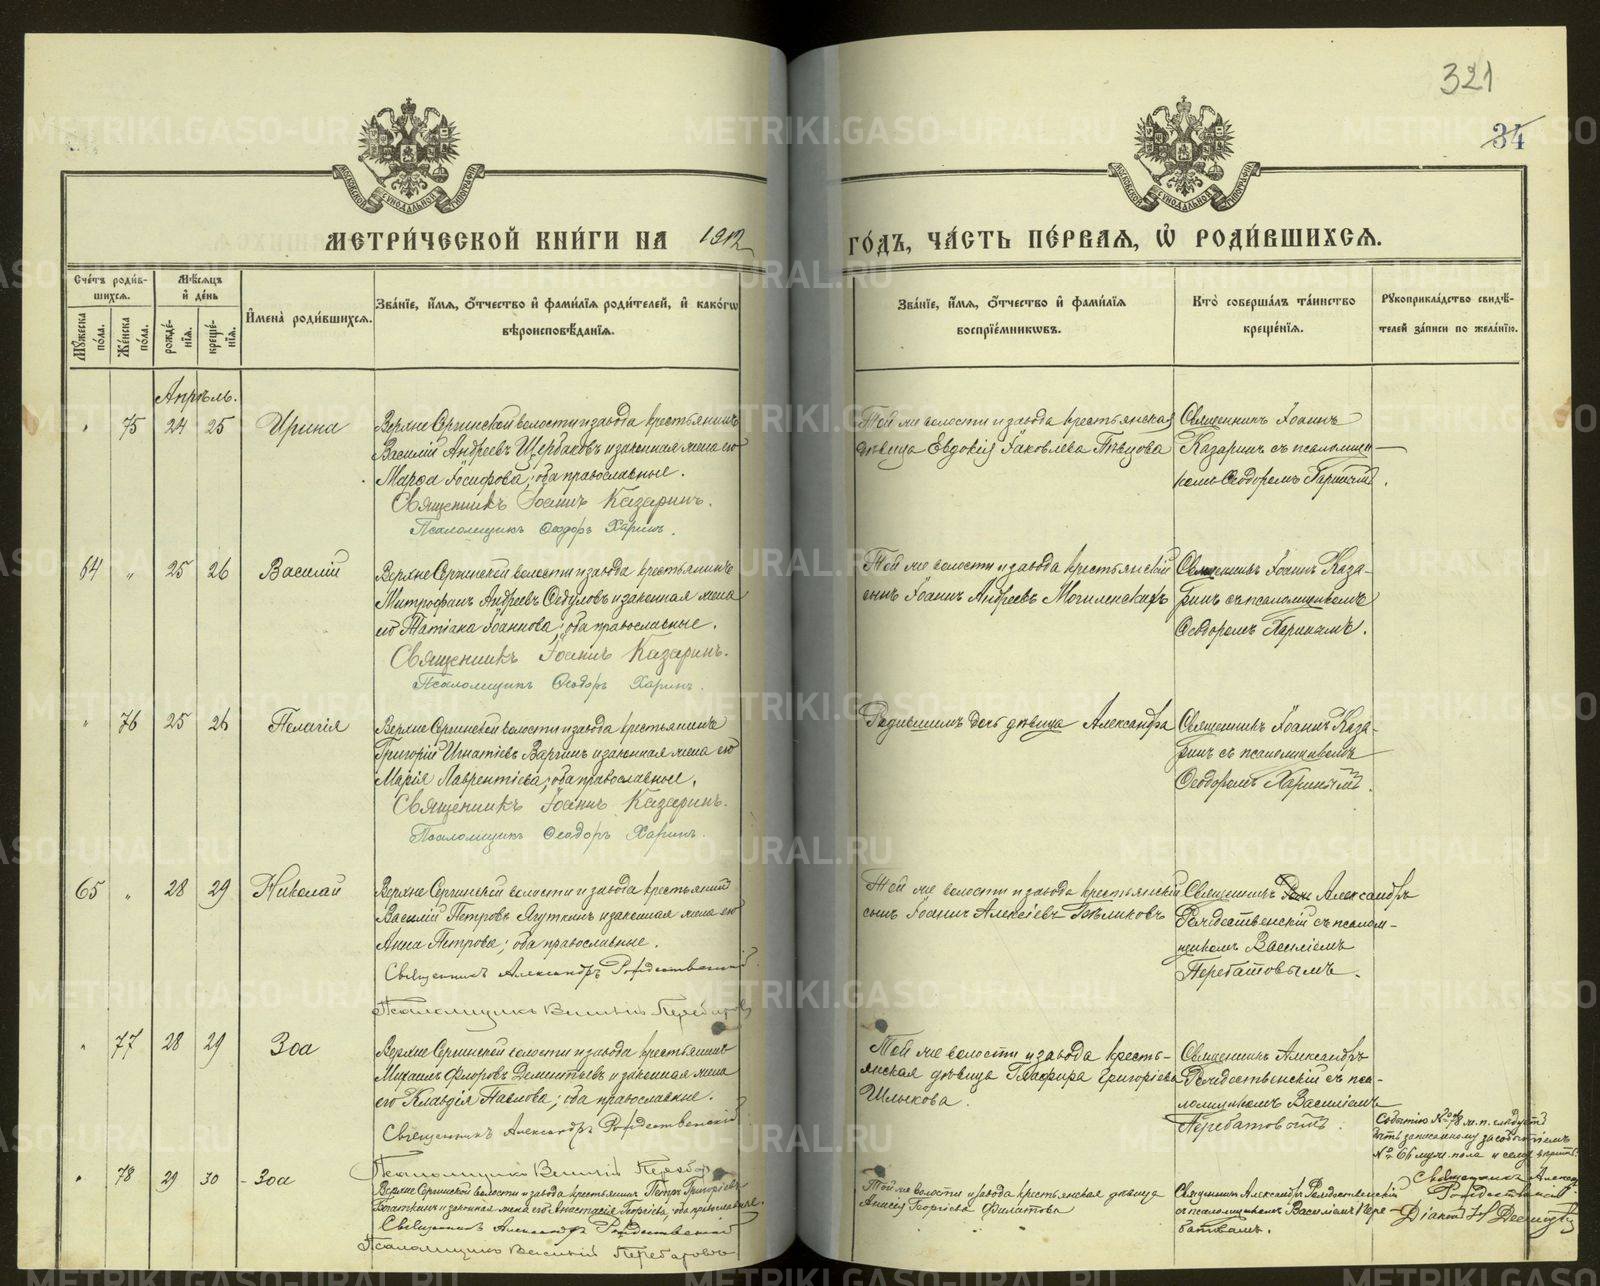 321
34
МЕТРИ́ЧЕСКОЙ КНИ́ГИ НА 1912
ГО́ДЪ, ЧА́СТЬ ПЕ́РВАЯ, Ѡ҆ РОДИ́ВШИХСЯ.
Сче́тъ роди́в-
шихся.
Мѣ́сяцъ
и҆ де́нь
Мꙋ́жеска по́ла.
Же́нска по́ла.
рожде́-
нїя.
креще́-
нїя.
И҆мена̀ роди́вшихся.
Зва́нїе, и҆́мя, ѻ҆́тчество и҆ фами́лїя роди́телей, и҆ како́гѡ
вѣроисповѣ́данїя.
Зва́нїе, и҆́мя, ѻ҆́тчество и҆ фами́лїя
воспрїе́мникѡвъ.
Кто̀ соверша́лъ та́инство
креще́нїя.
Рꙋкоприкла́дство свидѣ́-
телей за́писи по жела́нїю.
Апрѣль.
" 75 24 25 Ирина
Верхне Сергинской волости и завода крестьянинъ
Василій Андреевъ Щербаковъ и законная жена его
Марѳа Іосифова; оба православные.
Священникъ Іоаннъ Казаринъ.
Псаломщикъ Ѳеодоръ Харинъ.
Той же волости и завода крестьянская
дѣвица Евдокія Іаковлева Пѣвцова
Священникъ Іоаннъ
Казаринъ съ псаломщи-
комъ Ѳеодоромъ
64 " 25 26 Василій
Верхне Сергинской волости и завода крестьянинъ
Митрофанъ Андреевъ Ѳедуловъ и законная жена
его Татіана Іоаннова; оба православные.
Священникъ Іоаннъ Казаринъ.
Псаломщикъ Ѳеодоръ Харинъ.
Той же волости и завода крестьянскій
сынъ Іоаннъ Андреевъ Могиленскихъ
Священникъ Іоаннъ Каза-
ринъ съ псаломщикомъ
Ѳеодоромъ Харинымъ.
" 76 25 26 Пелагія
Верхне Сергинской волости и завода крестьянинъ
Григорій Игнатіевъ Варгинъ и законная жена его
Марія Лаврентіева; оба православные.
Священникъ Іоаннъ Казаринъ.
Псаломщикъ Ѳеодоръ Харинъ.
Родившихъ дочь дѣвица Александра
Священникъ Іоаннъ Каза-
ринъ съ псаломщикомъ
Ѳеодоромъ Харинымъ.
65 " 28 29 Николай
Верхне Сергинской волости и завода крестьянинъ
Василій Петровъ Ягуткинъ и законная жена его
Анна Петрова; оба православные.
Священникъ Александръ Рождественскій.
Псаломщикъ Василій
Той же волости и завода крестьянскій
сынъ Іоаннъ Алексіевъ
Священникъ Александръ
Рождественскій съ псалом-
щикомъ Василіемъ
Перебатовымъ.
" 77 28 29 Зоа
Верхне Сергинской волости и завода крестьянинъ
Михаилъ Флоровъ Дементьевъ и законная жена
его Клавдія Павлова; оба православные.
Священникъ Александръ Рождественскій
Псаломщикъ Василій
Той же волости и завода кресть-
янская дѣвица Глафира Григоріева
Шлыкова.
Священникъ Александръ
Рождественскій съ пса-
ломщикомъ Василіемъ
Перебатовымъ.
" 78 29 30 Зоа
Верхне Сергинской волости и завода крестьянинъ Петръ Григоріевъ
и законная жена его Анастасія Георгіева; оба православные.
Священникъ Александръ Рождественскій
Псаломщикъ Василій
Той же волости и завода крестьянская дѣвица
Анисія Георгіева Филатова
Священникъ Александръ Рождественскій
съ псаломщикомъ Василіемъ Пере-
батовымъ.
Событію № 78 ж. п. слѣдуетъ
быть записанному за событіемъ
№ 66 муж. пола и сему вѣрить.
Священникъ
Рождественскій
Діаконъ